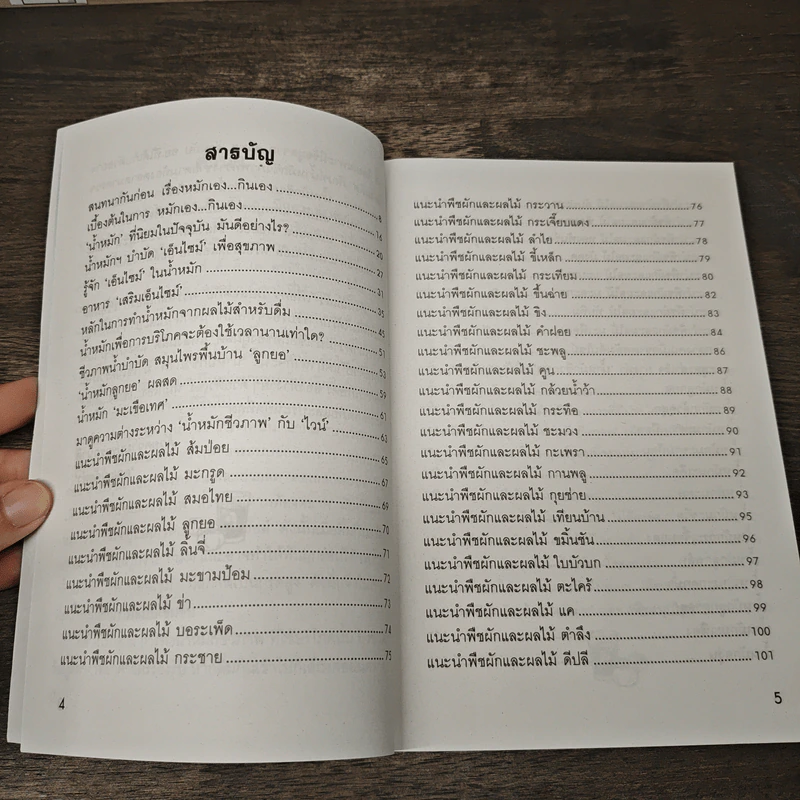 สารบัญ
สนทนากันก่อน เรื่องหมักเอง...กินเอง 8
เบื้องต้นในการ หมักเอง...กินเอง 16
'น้ำหมัก' ที่นิยมในปัจจุบัน มันดีอย่างไร? 20
น้ำหมักฯ บำบัด 'เอ็นไซม์' เพื่อสุขภาพ 27
รู้จัก 'เอ็นไซม์' ในน้ำหมัก 31
อาหาร 'เสริมเอ็นไซม์' 35
หลักในการทำน้ำหมักจากผลไม้สำหรับดื่ม 45
น้ำหมักเพื่อการบริโภคจะต้องใช้เวลานานเท่าใด? 51
ชีวภาพน้ำบำบัด สมุนไพรพื้นบ้าน 'ลูกยอ' 53
'น้ำหมักลูกยอ' ผลสด 59
น้ำหมัก 'มะเขือเทศ' 61
มาดูความต่างระหว่าง 'น้ำหมักชีวภาพ' กับ 'ไวน์' 63
แนะนำพืชผักและผลไม้ ส้มป่อย 65
แนะนำพืชผักและผลไม้ มะกรูด 67
แนะนำพืชผักและผลไม้ สมอไทย 69
แนะนำพืชผักและผลไม้ ลูกยอ 70
แนะนำพืชผักและผลไม้ ลิ้นจี่ 71
แนะนำพืชผักและผลไม้ มะขามป้อม 72
แนะนำพืชผักและผลไม้ ข่า 73
แนะนำพืชผักและผลไม้ บอระเพ็ด 74
แนะนำพืชผักและผลไม้ กระชาย 75
4
แนะนำพืชผักและผลไม้ กระวาน 76
แนะนำพืชผักและผลไม้ กระเจี๊ยบแดง 77
แนะนำพืชผักและผลไม้ ลำไย 78
แนะนำพืชผักและผลไม้ ขี้เหล็ก 79
แนะนำพืชผักและผลไม้ กระเทียม 80
แนะนำพืชผักและผลไม้ ขึ้นฉ่าย 82
แนะนำพืชผักและผลไม้ ขิง 83
แนะนำพืชผักและผลไม้ คำฝอย 84
แนะนำพืชผักและผลไม้ ชะพลู 86
แนะนำพืชผักและผลไม้ คูน 87
แนะนำพืชผักและผลไม้ กล้วยน้ำว้า 88
แนะนำพืชผักและผลไม้ กระทือ 89
แนะนำพืชผักและผลไม้ ชะมวง 90
แนะนำพืชผักและผลไม้ กะเพรา 91
แนะนำพืชผักและผลไม้ กานพลู 92
แนะนำพืชผักและผลไม้ กุยช่าย 93
แนะนำพืชผักและผลไม้ เทียนบ้าน 95
แนะนำพืชผักและผลไม้ ขมิ้นชัน 96
แนะนำพืชผักและผลไม้ ใบบัวบก 97
แนะนำพืชผักและผลไม้ ตะไคร้ 98
แนะนำพืชผักและผลไม้ แค 99
แนะนำพืชผักและผลไม้ ตำลึง 100
แนะนำพืชผักและผลไม้ ดีปลี 101
5